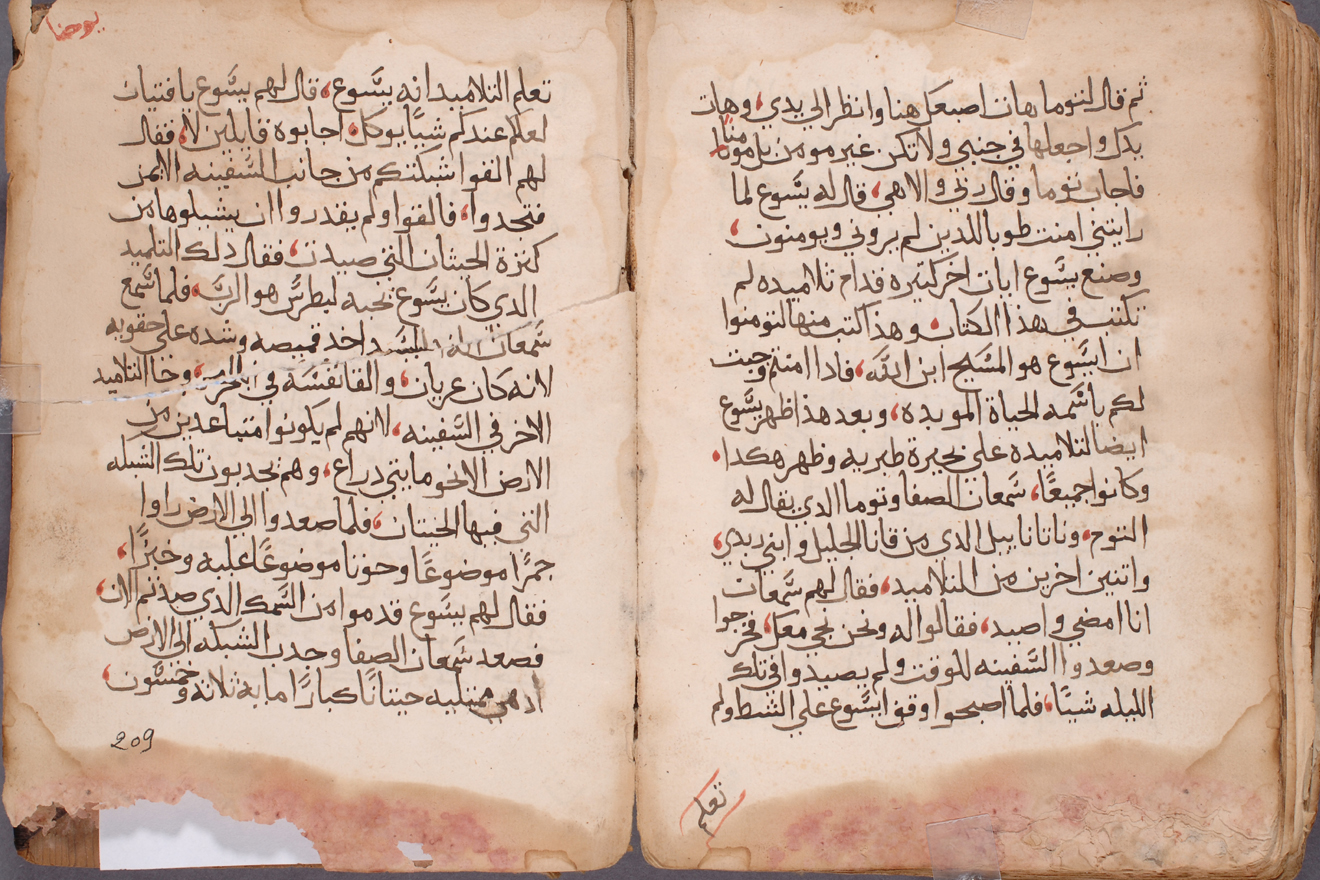 ثم قال لتوما هات اصبعك هنا وانظر الي يدي، وهات
يدك واجعلها في جنبي ولا تكن غير مومن بل مومنا
فاجاب توما وقال ربي والاهي، قال له يسوع لما
رايتني امنت طوبا للدين لم يروني ويومنون،
وصنع يسوع ايات اخر كثيره قدام تلاميده لم
تكتب في هدا الكتاب، وهدا كتب منها لتومنوا
ان ايسوع هو المسيح ابن الله، فادا امنتم وجبت
لكم باسمه الحياة الموبده، وبعد هدا ظهر يسوع
ايضا لتلاميده علي بحيرة طبريه وظهر هكدا،
وكانوا جميعًا، سمعان الصفا وتوما الدي يقال له
التوم، وناتانابيل الدي من قانا الجليل وابني زبدي،
واتنين اخرين من التلاميد، فقال لهم سمعان
انا امضي واصيد، فقالوا له ونحن نجي معك، فخرجوا
وصعدوا السفينه للوقت ولم يصيدوا في تلك
الليله شيئًا، فلما اصبحوا وقف ايسوع علي الشط ولم
تعلم
يوحنا
تعلم التلاميد انه يسوع، قال لهم يسوع يا فتيان
لعلكم عندكم شيئًا يوكل، اجابوه قايلين لا، فقال
لهم القوا شبكتكم من جانب السفينه الايمن
فتجدوا، فالقوا ولم يقدروا ان يشيلوها من
كترة الحيتان التي صيدت، فقال دلك التلميد
الدي كان يسوع يحبه لبطرس هو الرب، فلما سمع
سمعان انه السيد اخد قميصه وشده علي حقويه
لانه كان عريان، والقا نفسه في البحر، وجا التلاميد
الاخر في السفينه، لانهم لم يكونوا متباعدين من
الارض الا نحو مايتي دراع، وهم يجدبون تلك الشبكه
التي فيها الحيتان، فلما صعدوا الي الارض راوا
جمرًا موضوعًا وحوتا موضوعًا عليه وخبزًا،
فقال لهم يسوع قدموا من السمك الدي صدتم الان،
فصعد سمعان الصفا وجدب الشبكه الي الارض
اد هي ممتليه حيتانًا كبارًا مايه تلاته وخمسون،
209